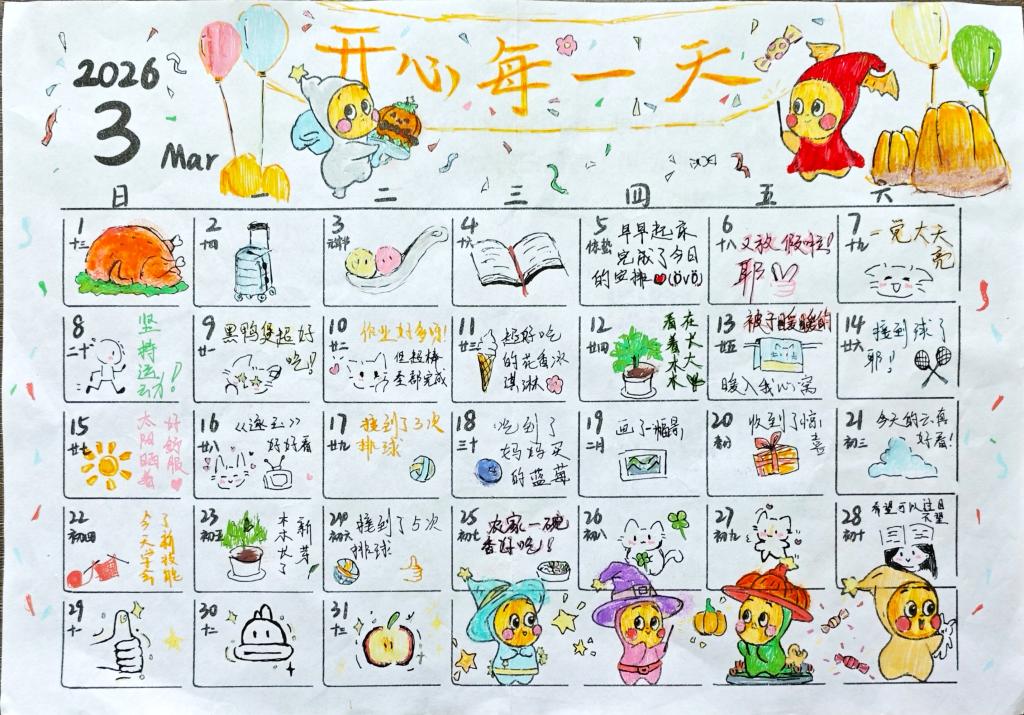 开心每一天
2026
3
Mar
日 一 二 三 四 五 六
1
十三
2
十四
3
元宵节
4
十六
5
惊蛰
早早起床
完成了今日
的安排
6
十八
又放假啦!
耶
7
十九
一觉大天
亮
8
二十
坚持运动!
9
廿一
黑鸭煲超好
吃!
10
廿二
作业好多呀!
但超棒
全部完成
11
廿三
超好吃
的花香冰
淇淋
12
廿四
在大大
看着木木
13
廿五
被子暖暖的
暖入我心窝
14
廿六
接到球了
耶!
15
廿七
好舒服
太阳晒着
16
廿八
《逐玉》
好好看
17
廿九
接到了3次
排球
18
三十
吃到了
妈妈买
的蓝莓
19
二月
画了一幅景
20
春分
收到了惊
喜
21
初三
今天的云真
好看!
22
初四
了新技能
今天学会
23
初五
新芽
木木长了
24
初六
接到了5次
排球
25
初七
农家一碗
香好吃!
26
初八
27
初九
28
初十
希望可以过目
不忘
29
十一
30
十二
31
十三